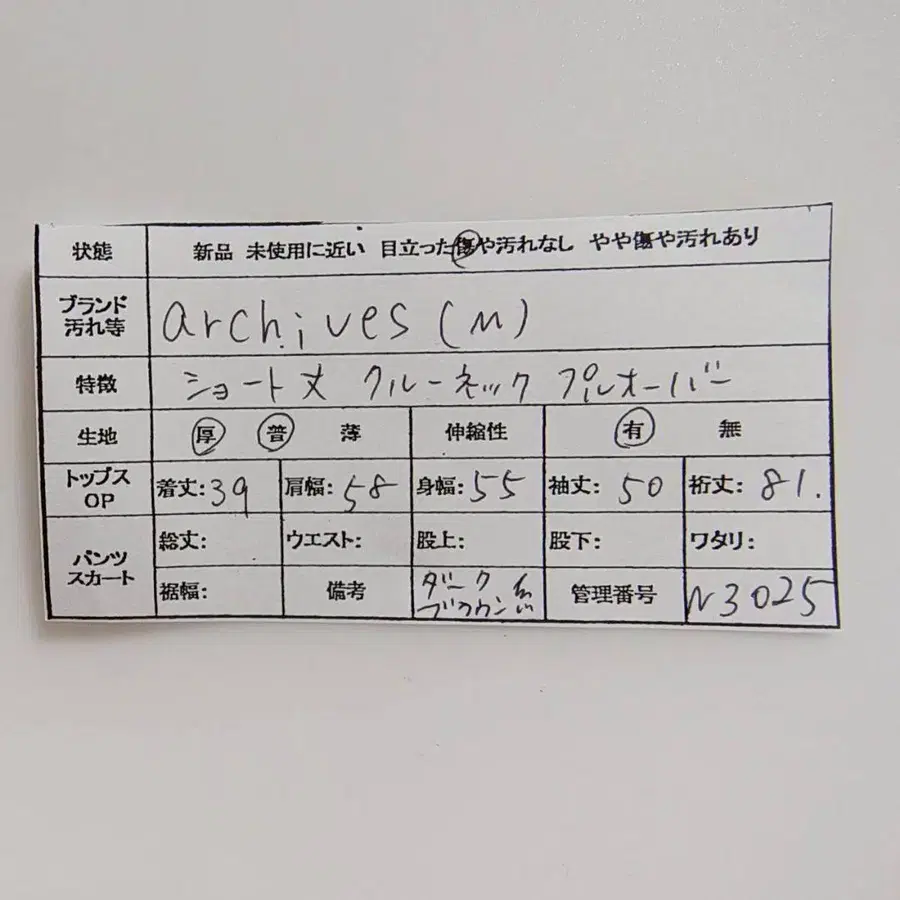 状態 新品 未使用に近い 目立った傷や汚れなし やや傷や汚れあり
ブランド
汚れ等
archives (M)
特徴 ショート丈 クルーネック プルオーバー
生地 厚 普 薄 伸縮性 有 無
トップス
OP
着丈:39 肩幅:58 身幅:55 袖丈:50 裄丈:81.
パンツ
スカート
総丈: ウエスト: 股上: 股下: ワタリ:
裾幅: 備考
ダーク
ブラウン
管理番号 N3025